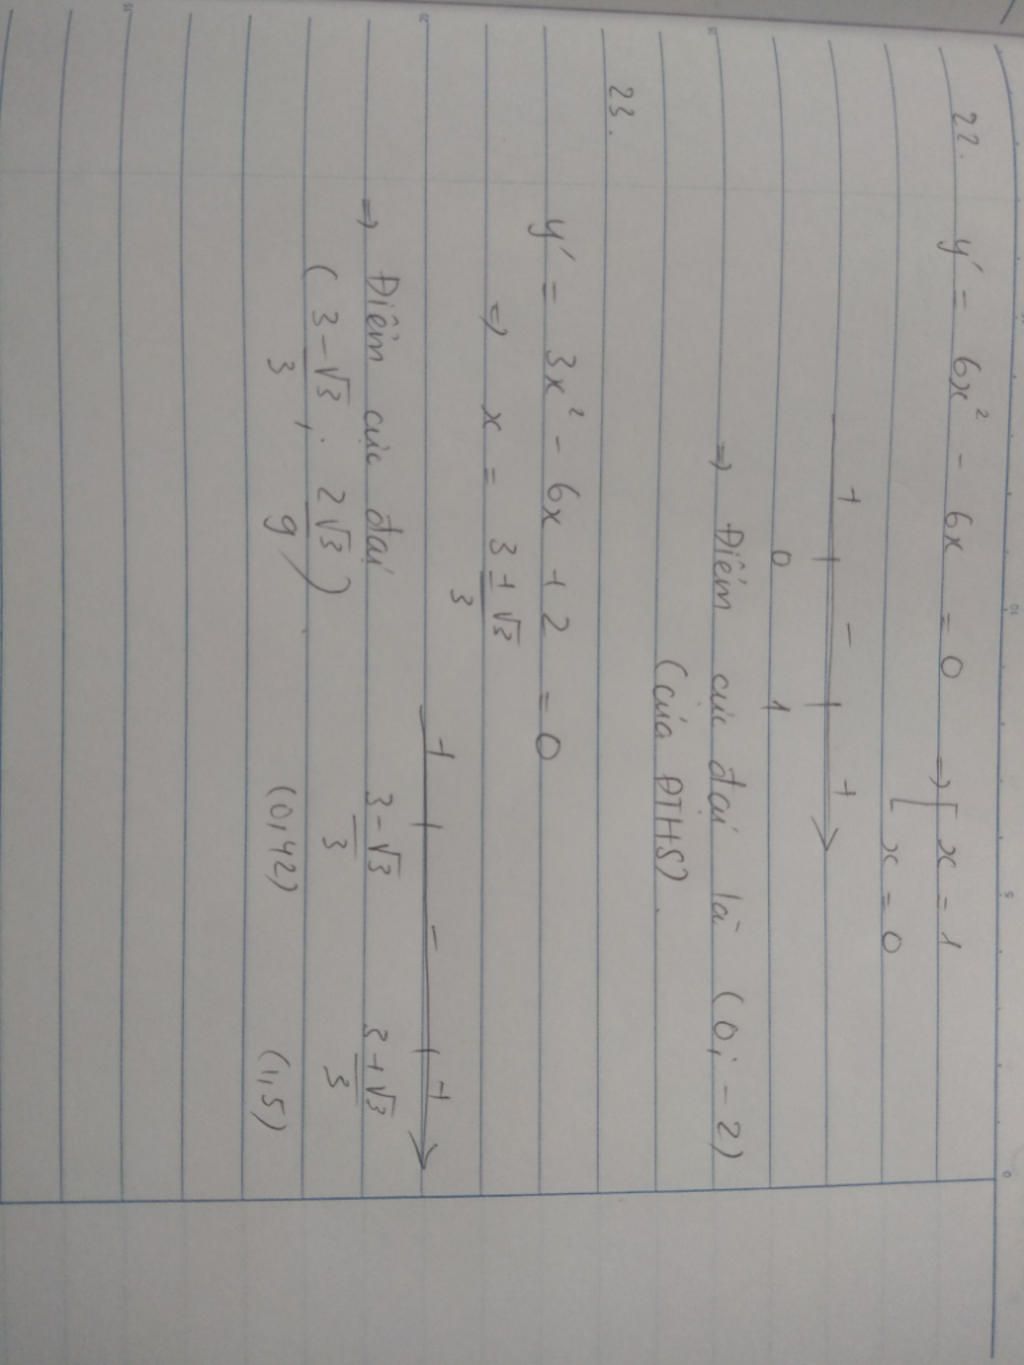 22. y' = 6x² - 6x = 0 ⇒ [ x = 1
x = 0
+ - +
0 1
⇒ Điểm cực đại là (0; -2)
(của ĐTHS).
23.
y' = 3x² - 6x + 2 = 0
⇒ x = (3 ± √3)/3
+ - +
(3 - √3)/3 (3 + √3)/3
(0,42) (1,5)
⇒ Điểm cực đại
((3 - √3)/3; (2√3)/9)